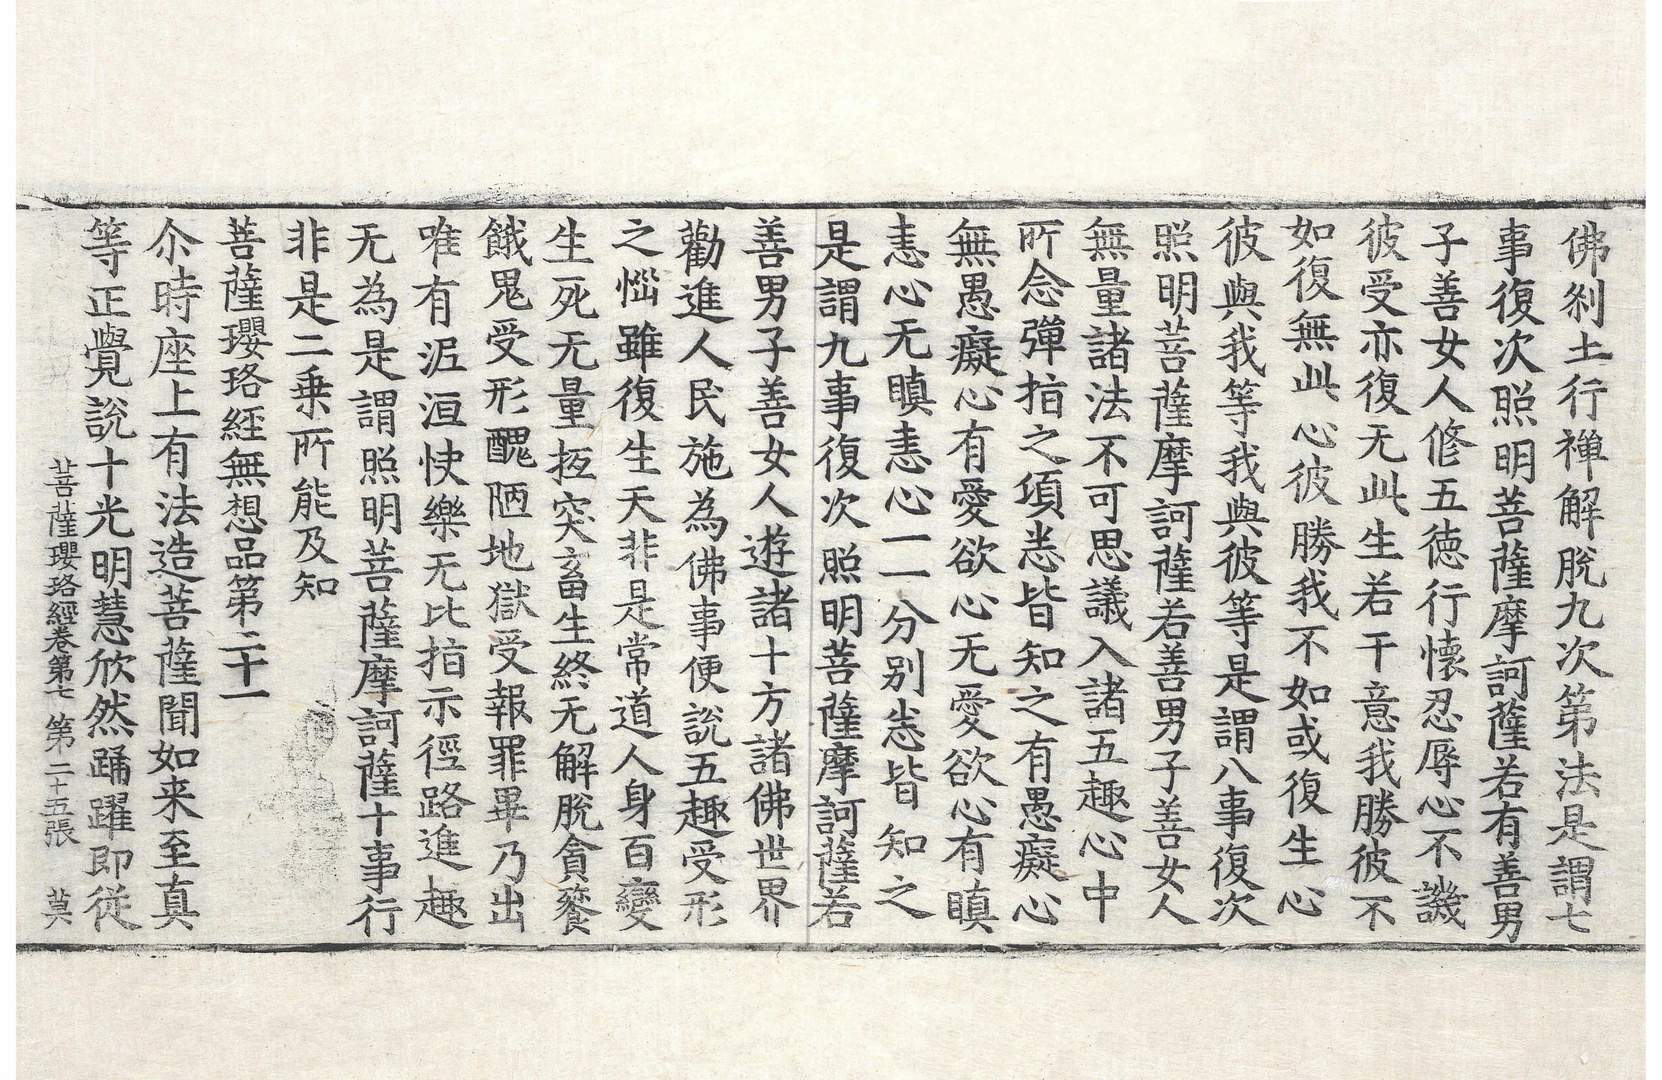 佛刹土行禅解脫九次第法是謂七
事復次照明菩薩摩訶薩若有善男
子善女人修五德行懷忍辱心不譏
彼受亦復无此生若干意我勝彼不
如復無此心彼勝我不如或復生心
彼與我等我與彼等是謂八事復次
照明菩薩摩訶薩若善男子善女人
無量諸法不可思議入諸五趣心中
所念彈指之頃悉皆知之有愚癡心
無愚癡心有愛欲心无愛欲心有瞋
恚心无瞋恚心一一分别悉皆知之
是謂九事復次照明菩薩摩訶薩若
善男子善女人遊諸十方諸佛世界
勸進人民施為佛事便說五趣受形
之惱雖復生天非是常道人身百變
生死无量抂突畜生終无解脫貪餮
餓鬼受形醜陋地獄受報罪畢乃出
唯有泥洹快樂无比指示徑路進趣
无為是謂照明菩薩摩訶薩十事行
非是二乘所能及知
菩薩瓔珞經無想品第二十一
尒時座上有法造菩薩聞如来至真
等正覺說十光明慧欣然踊躍即從
菩薩瓔珞經卷第七　第二十五張　莫